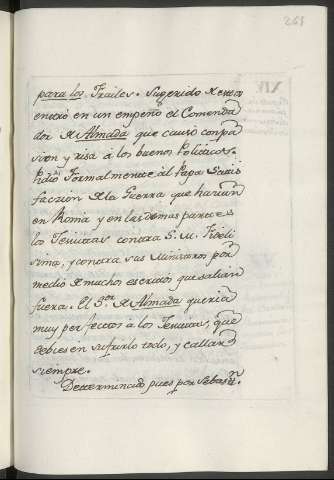 261
para los Frailes. Sugerido de esto
entró en un empeño el Comenda
dor de Almada que causó compa
sion y risa á los buenos Politicos.
Pidió Formalmente al Papa Satis
faccion de la Guerra que hacian
en Roma y en las demas partes
los Jesuitas contra S. M. Fideli
sima, y contra sus Ministros por
medio de muchos escritos que salian
fuera. El S.or de Almada queria
muy perfectos á los Jesuitas, que
debiesen sufrirlo todo, y callar
siempre.
Determinado pues por Sebas.n